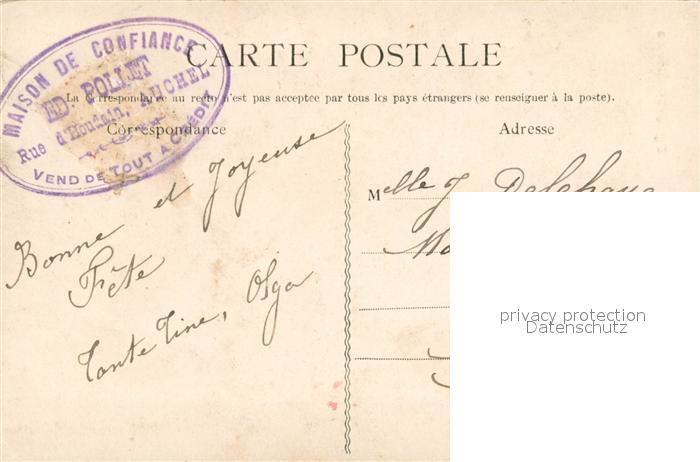 MAISON DE CONFIANCE
ED. POLLET
Rue d'Houdain, AUCHEL
VEND DE TOUT A CRÉDIT
CARTE POSTALE
La Correspondance au recto n'est pas acceptée par tous les pays étrangers (se renseigner à la poste).
Correspondance
Bonne et Joyeuse
Fête
Tante Line, Olga
Adresse
Melle J. Delehaye
privacy protection
Datenschutz